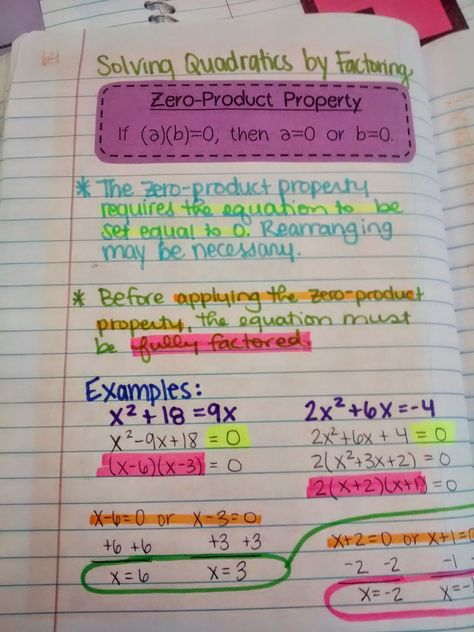 64
Solving Quadratics by Factoring
Zero-Product Property
If (a)(b)=0, then a=0 or b=0.
* The zero-product property
requires the equation to be
set equal to 0. Rearranging
may be necessary.
* Before applying the zero-product
property, the equation must
be fully factored.
Examples:
x²+18=9x
x²-9x+18=0
(x-6)(x-3)=0
x-6=0 or x-3=0
+6 +6 +3 +3
x=6 x=3
2x²+6x=-4
2x²+6x+4=0
2(x²+3x+2)=0
2(x+2)(x+1)=0
x+2=0 or x+1=0
-2 -2 -1
x=-2 x=-